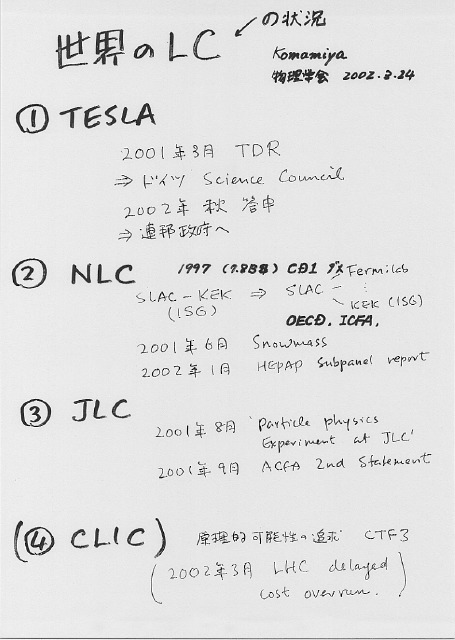 世界のLC ↙の状況
Komamiya
物理学会 2002.3.24
① TESLA
2001年3月 TDR
⇒ ドイツ Science Council
2002年 秋 答申
⇒ 連邦政府へ
② NLC 1997 (7.8BB$) CD1 ダメ
SLAC-KEK (ISG) ⇒ SLAC - Fermilab
KEK (ISG)
OECD, ICFA,
2001年6月 Snowmass
2002年1月 HEPAP Subpanel report
③ JLC
2001年8月 'Particle physics
Experiment at JLC'
2001年9月 ACFA 2nd Statement
(④ CLIC) 原理的可能性の追求 CTF3
(2002年3月 LHC delayed
cost overrun.)